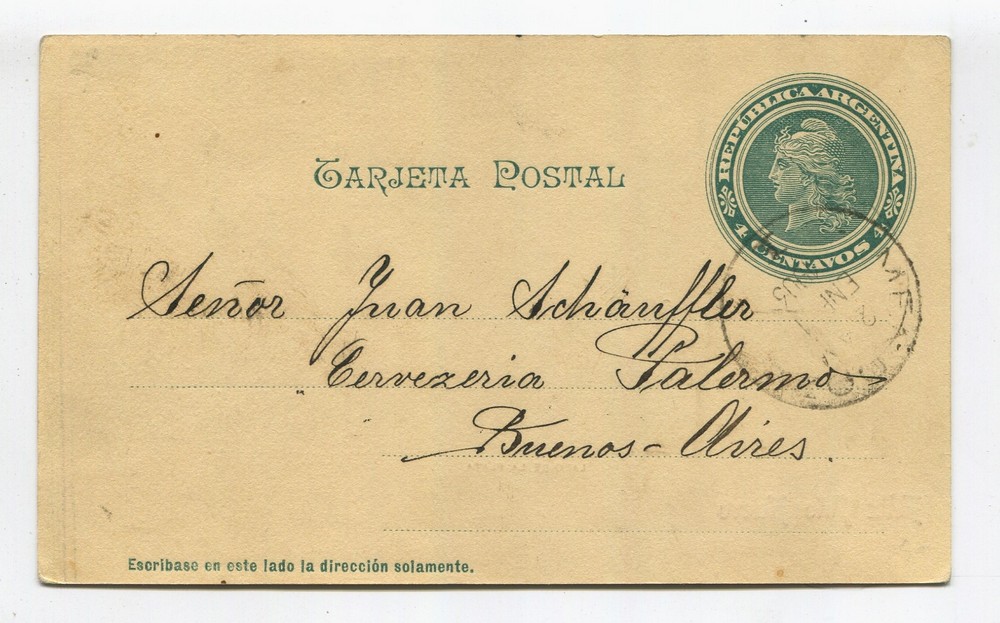 REPÚBLICA ARGENTINA
4 CENTAVOS 4
TARJETA POSTAL
Señor Juan Schäuffler
Cervezeria Palermo
Buenos-Aires.
Escribase en este lado la dirección solamente.